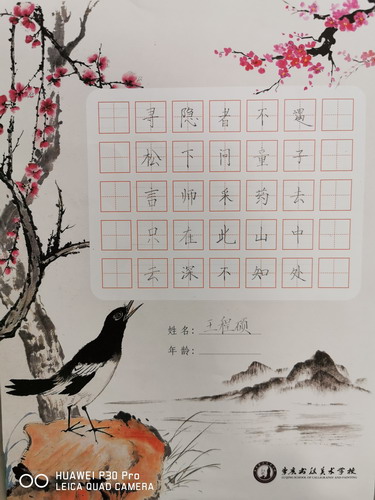 寻隐者不遇
松下问童子
言师采药去
只在此山中
云深不知处
姓名：王程硕
年龄：
HUAWEI P30 Pro
LEICA QUAD CAMERA